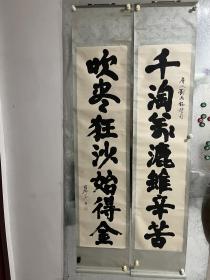 千淘万漉雖辛苦
吹尽狂沙始得金